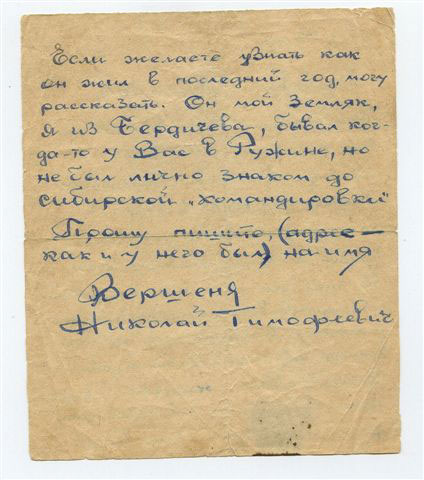 Если желаете узнать как
он жил в последний год, могу
рассказать. Он мой земляк,
я из Бердичева, бывал ког-
да-то у Вас в Ружине, но
не был лично знаком до
сибирской „командировки"
Прошу пишите, (адрес —
как и у него был) на имя
Вершеня
Николай Тимофеевич